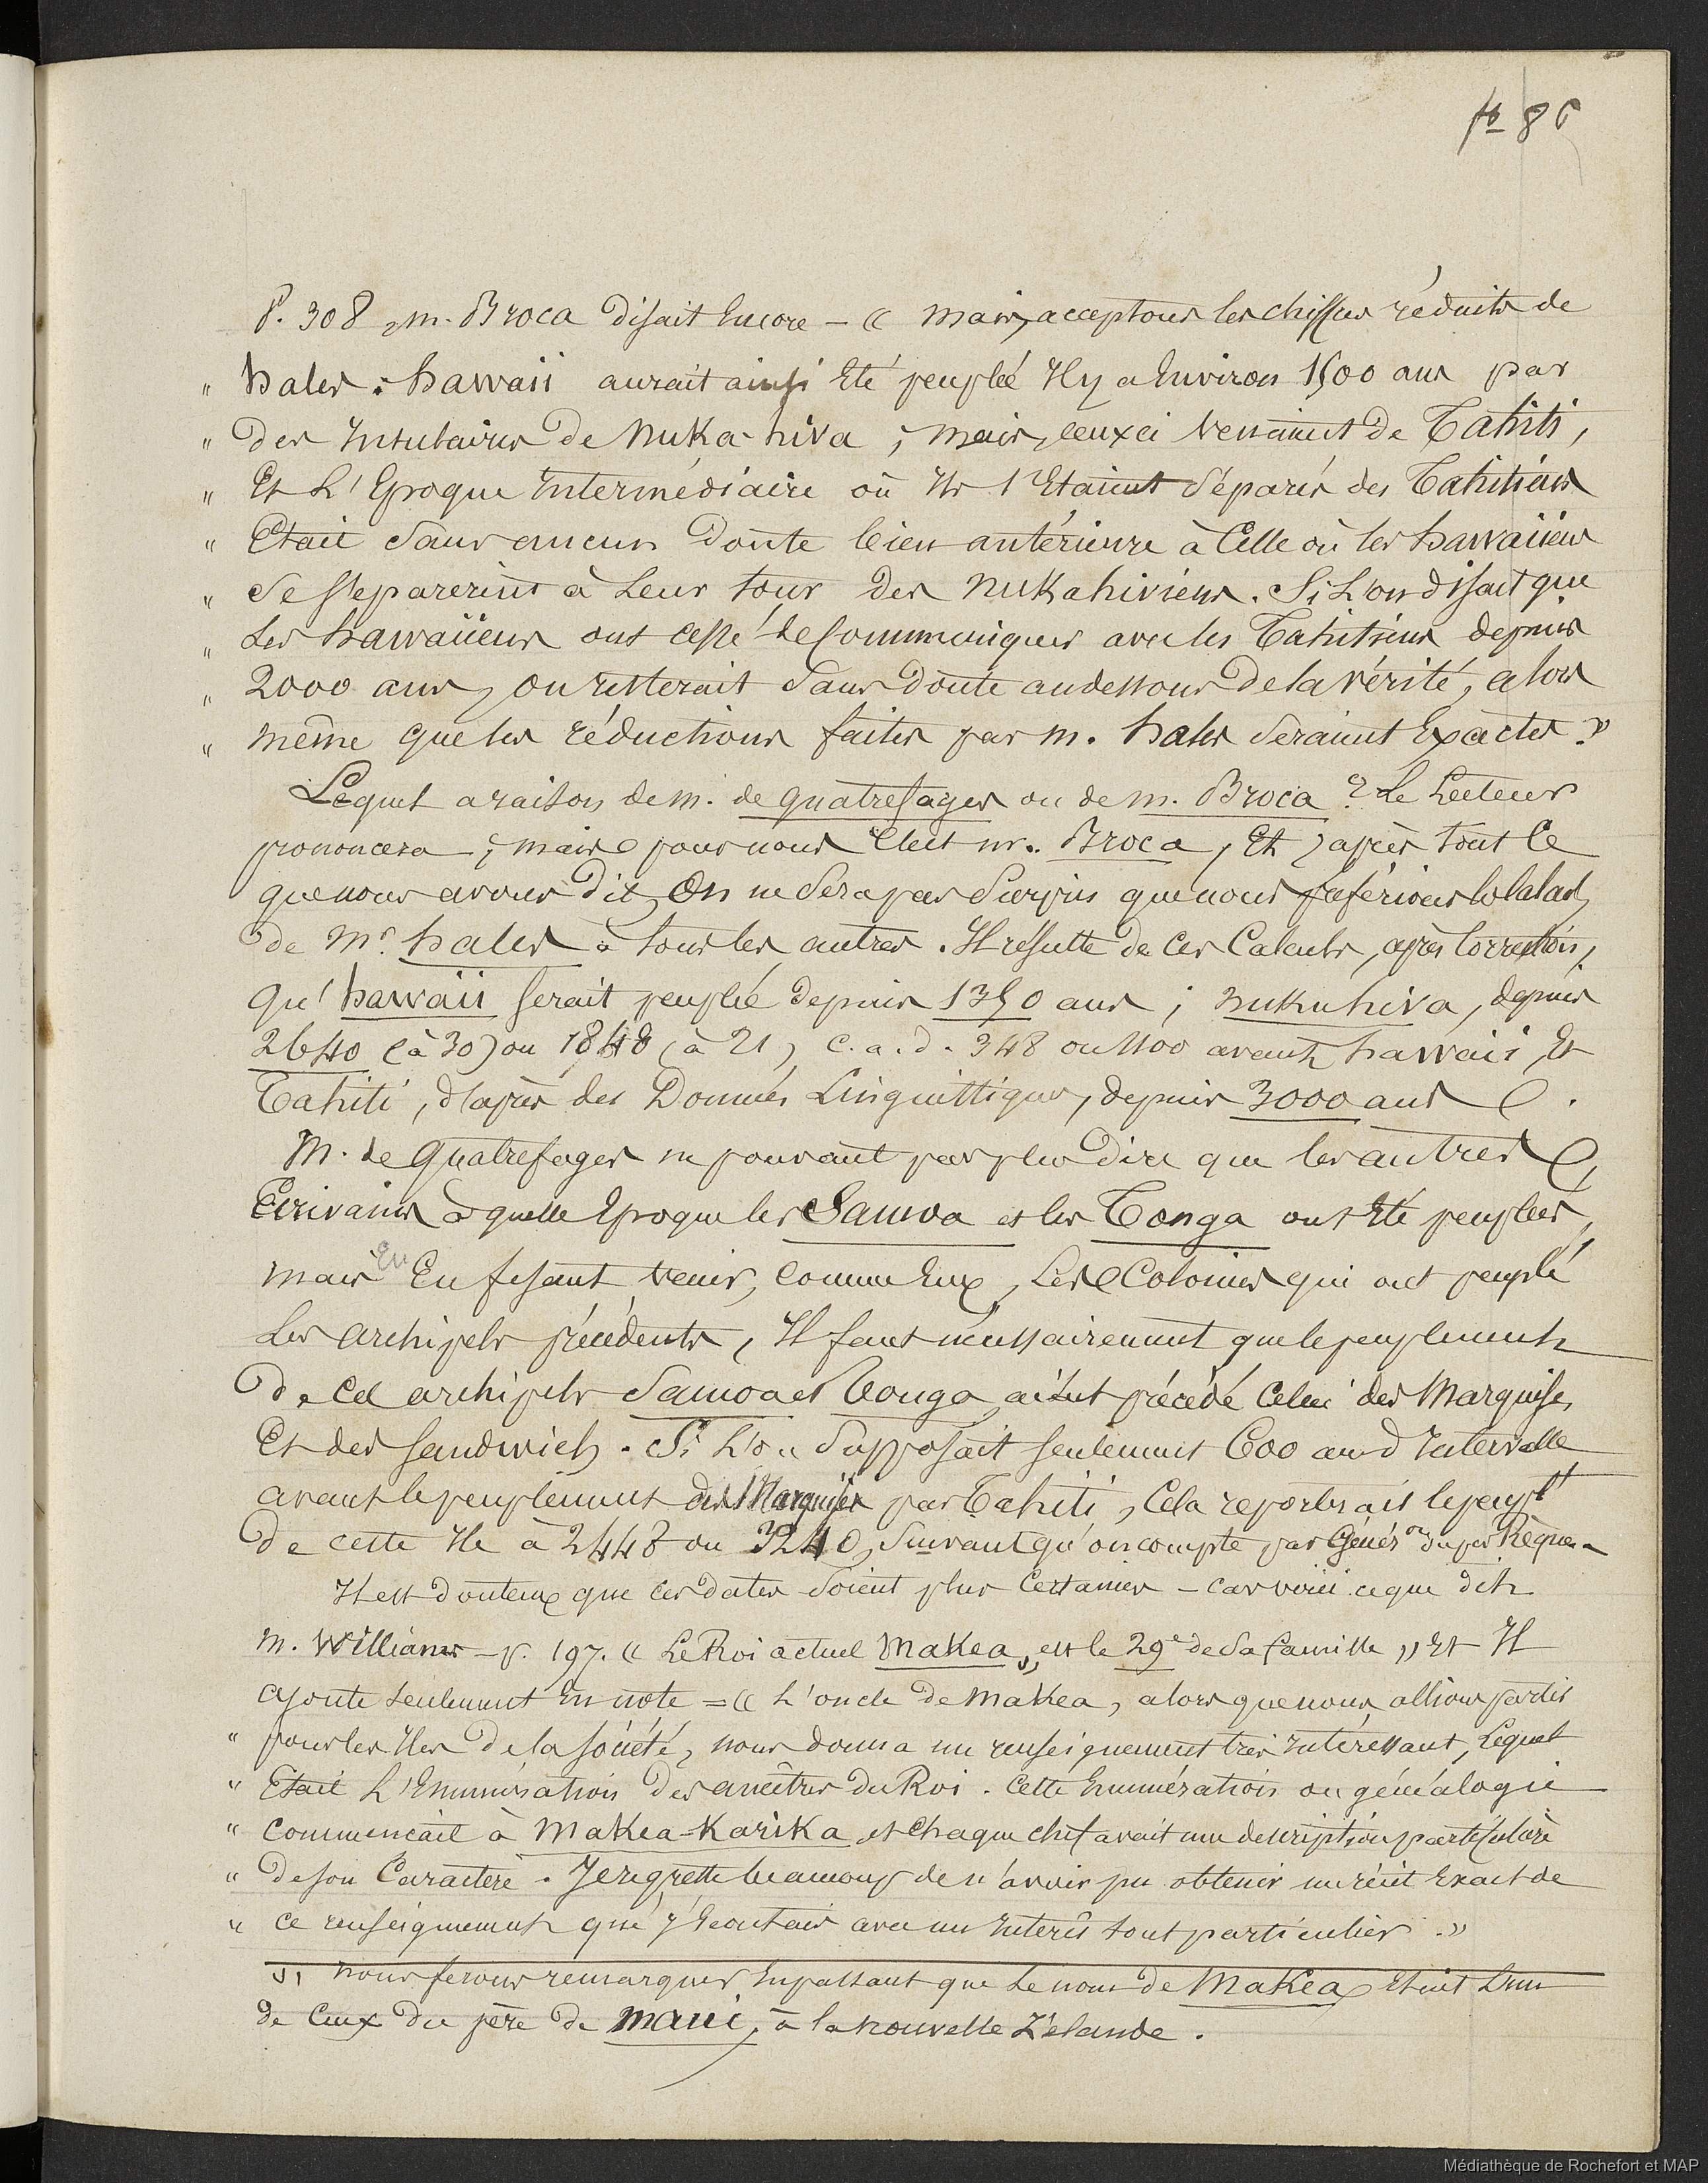 fo 86
P. 308, m. Broca disait Encore – « mais, acceptons les chiffres réduits de
" hales : hawaii aurait ainsi Eté peuplée Il y a Environ 1500 ans par
" des Insulaires de Nuka-hiva ; mais, ceux ci venaient de Tahiti,
" Et L'Epoque Intermédiaire où Ils s'Etaient séparés des Tahitiens
" Etait sans aucun doute bien antérieure à Celle où les hawaiiens
" se séparerent à Leur tour des Nukahiviens. Si L'on disait que
" Les hawaiiens ont cessé de Communiquer avec les Tahitiens depuis
" 2000 ans, on resterait sans doute au dessous de la vérité, alors
" même que les réductions faites par m. hales seraient Exactes. »
Lequel a raison de m. de quatrefages ou de m. Broca ? Le Lecteur
prononcera ; mais pour nous C'est m. Broca, Et, après tout Ce
que nous avons dit, On ne sera pas surpris que nous préférions
de Mr. hales à tous les autres. Il résulte de Ces Calculs, après correction,
qu'hawaii serait peuplée depuis 1350 ans ; nukuhiva, depuis
2640 (à 30) ou 1848 (à 21), c. a. d. 348 ou avant hawaii, Et
Tahiti, d'après des Données Linguistiques, depuis 3000 ans.
M. de Quatrefages ne pouvant pas plus dire que les autres
Ecrivains à quelle Epoque les Samoa et les Tonga ont Eté peuplées,
mais En En fesant venir, comme Eux, Les Colonies qui ont peuplé
Les archipels précédents, Il faut nécessairement que le peuplement
de Ces archipels Samoa et Tonga, aient précédé Celui des Marquises
Et des Sandwich. Si L'on supposait seulement 600 ans d'Intervalle
avant le peuplement des Marquises par Tahiti, Cela reporterait le peuplt
de cette Ile à 2448 ou 3240, suivant qu'on compte par Génér on ou par Règne.
Il est douteux que ces dates soient plus Certaines – car voici ce que dit
m. Williams – p. 197. « Le Roi actuel Makea, (1) est le 29e de sa famille » Et Il
ajoute seulement En note = « L'oncle de Makea, alors que nous allions partir
" pour les Iles de la société, nous donna un renseignement très Intéressant, Lequel
" Etait L'Enumération des ancêtres du Roi. Cette Enumération ou généalogie
" commencait à Makea-Karika et Chaque chef avait une description particulière
" de son Caractère. Je regrette beaucoup de n'avoir pu obtenir un récit Exact de
" ce renseignement que j'Ecoutais avec un Interêt tout particulier. »
(1) nous ferons remarquer En passant que Le nom de Makea Etait L'un
de Ceux du père de Maui, à la nouvelle Zélande.
Médiathèque de Rochefort et MAP